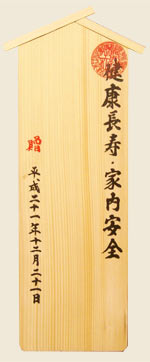 健康長寿・家内安全
平成二十一年十二月二十一日